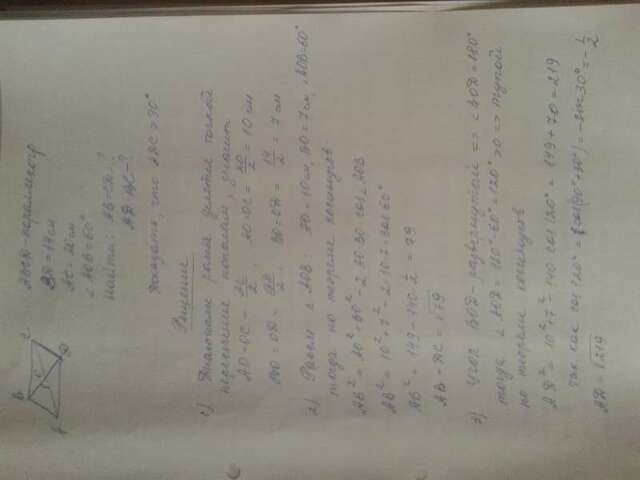 B C
A D
ABCD - параллелогр
BD = 14 см
AC = 20 см
∠AOB = 60°
Найти: AB = CD - ?
AD = BC - ?
Доказать, что ∠BC > 90°
Решение
1) Диагонали делятся точкой
пересечения пополам, значит
AO = OC = AC/2; AO = OC = 20/2 = 10 см
BO = OD = BD/2; BO = OD = 14/2 = 7 см
2) Рассм. △ AOB: AO = 10 см, BO = 7 см, ∠AOB = 60°
тогда по теореме косинусов
AB² = AO² + BO² - 2 AO BO cos ∠AOB
AB² = 10² + 7² - 2·10·7·cos 60°
AB² = 149 - 140·1/2 = 79
AB = DC = √79
3) Угол BOD - развернутый => ∠BOD = 180°
тогда ∠AOD = 180° - 60° = 120° > 0 => тупой
по теореме косинусов
AD² = 10² + 7² - 140 cos 120° = 149 + 70 = 219
так как cos 120° = cos(90° + 30°) = -sin 30° = -1/2
AD = √219